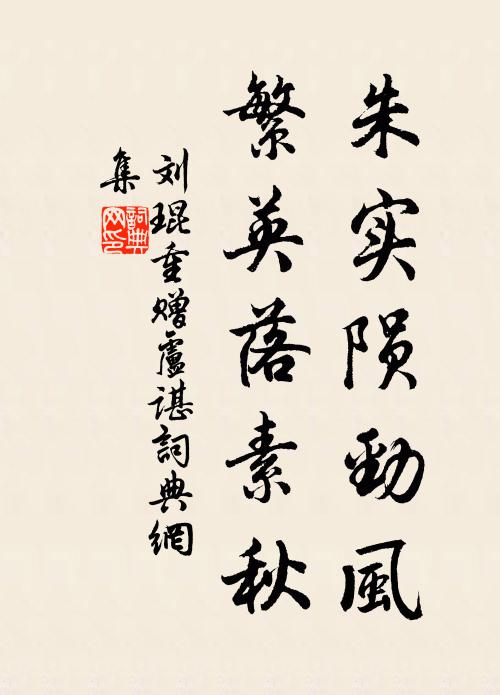 朱实陨劲風
繁英落素秋
刘琨重赠盧谌詞典網
集
詞典网印